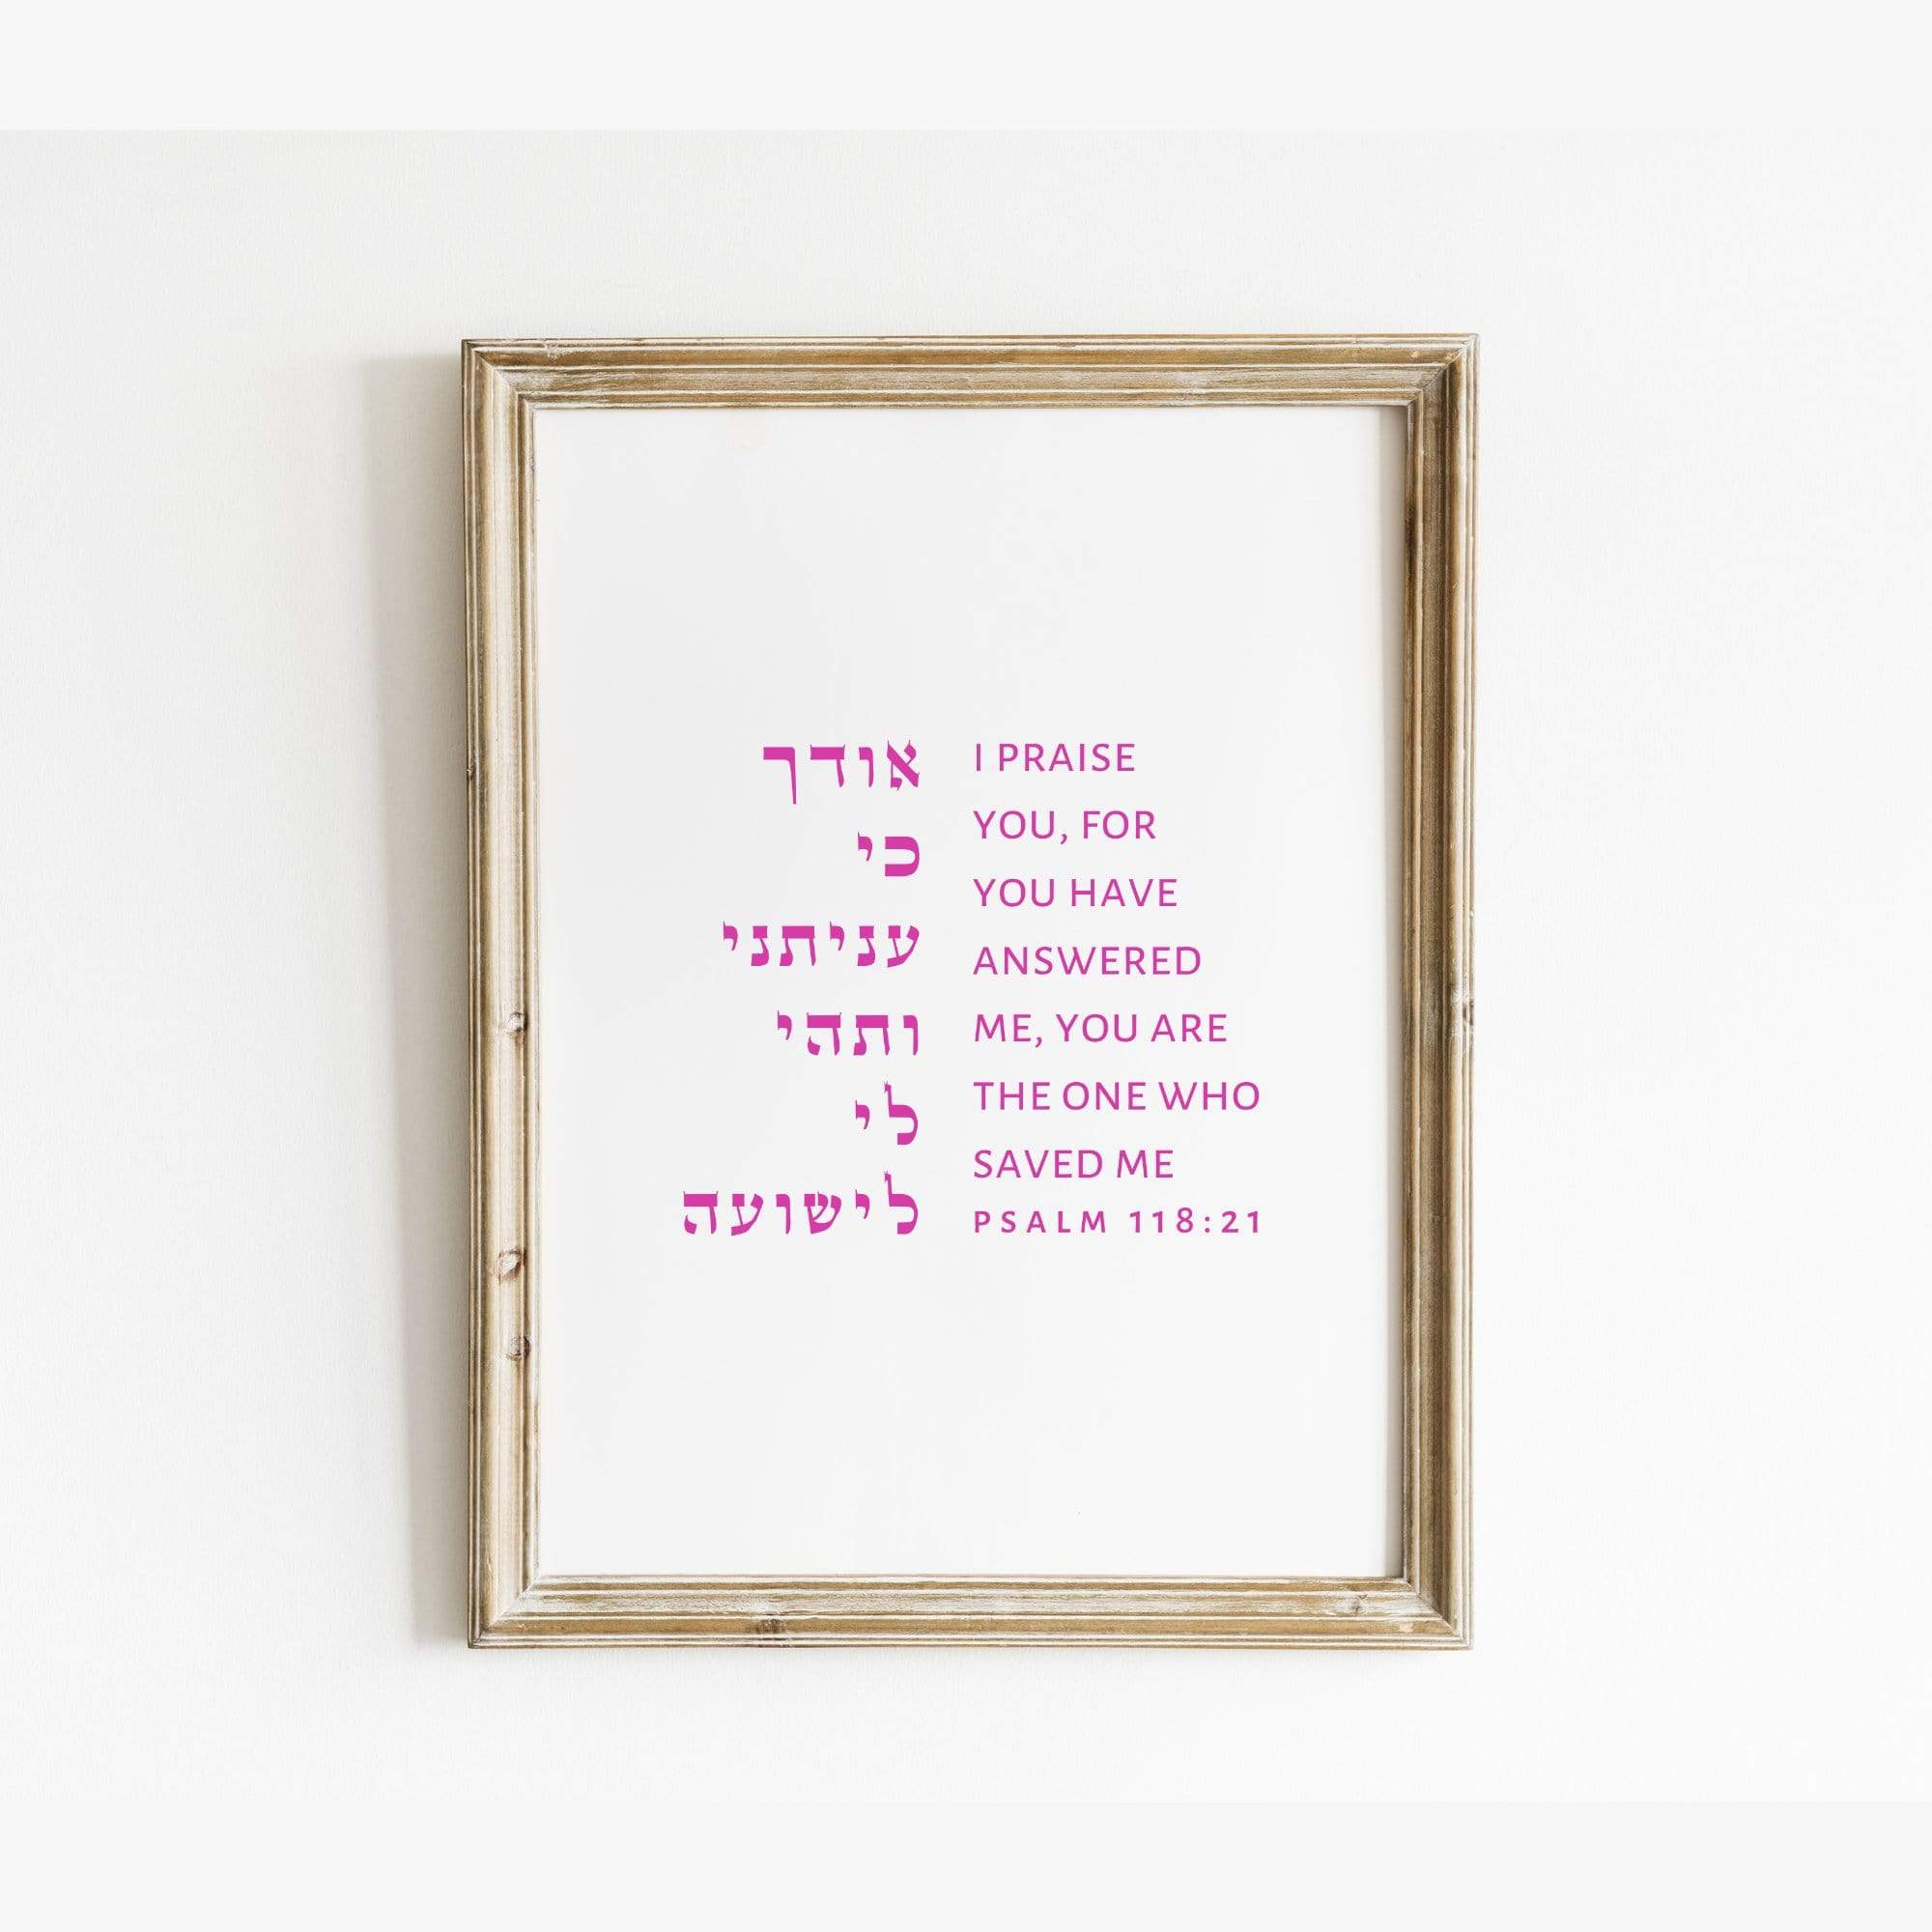 אודך
כי
עניתני
ותהי
לי
לישועה
I PRAISE
YOU, FOR
YOU HAVE
ANSWERED
ME, YOU ARE
THE ONE WHO
SAVED ME
PSALM 118:21